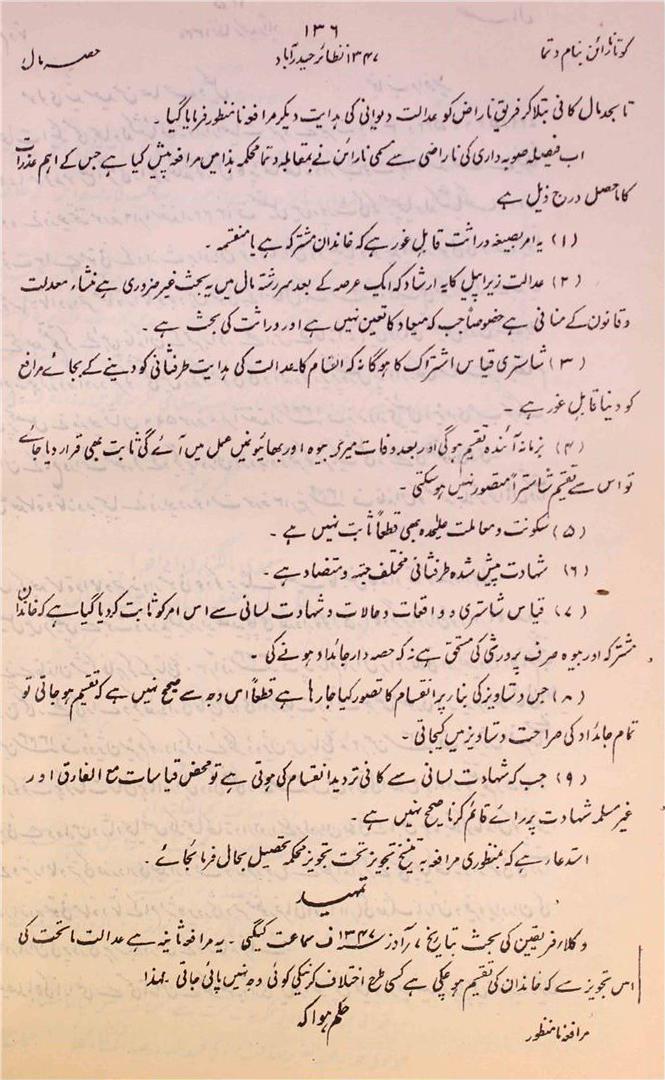 ۱۳۶
کوتا نارائن بنام دتما ۱۳۴۷ نظائر حیدرآباد حصہ مال
تابحد مال کافی بتلا کر فریق ناراض کو عدالت دیوانی کی ہدایت دیکر مرافعہ نامنظور فرمایا گیا ۔
اب فیصلہ صوبہ داری کی ناراضی سے مسمی نارائن نے بمقابلہ دتما محکمہ ہذا میں مرافعہ پیش کیا ہے جس کے اہم عذرات
کا ماحصل درج ذیل ہے
(۱) یہ امر بصیغہ وراثت قابل غور ہے کہ خاندان مشترکہ ہے یا منقسمہ ۔
(۲) عدالت زیر اپیل کا یہ ارشاد کہ ایک عرصہ کے بعد سررشتہ مال میں یہ بحث غیر ضروری ہے منشاء معدلت
و قانون کے منافی ہے خصوصاً جب کہ میعاد کا تعین نہیں ہے اور وراثت کی بحث ہے ۔
(۳) شاستری قیاس اشتراک کا ہوگا نہ کہ انقسام کا ۔ عدالت کی ہدایت طرفثانی کو دینے کے بجائے مرافع
کو دینا قابل غور ہے ۔
(۴) بزمانہ آئندہ تقسیم ہوگی اور بعد وفات میری بیوہ اور بھائیوں میں عمل میں آئے گی ثابت بھی قرار دیا جائے
تو اس سے تقسیم شاستراً متصور نہیں ہوسکتی ۔
(۵) سکونت و معاملت علیحدہ بھی قطعاً ثابت نہیں ہے ۔
(۶) شہادت پیش شدہ طرفثانی مختلف جہتہ و متضاد ہے ۔
(۷) قیاس شاستری و واقعات و حالات و شہادت لسانی سے اس امر کو ثابت کر دیا گیا ہے کہ خاندان
مشترکہ اور بیوہ صرف پرورش کی مستحق ہے نہ کہ حصہ دار جائداد ہونے کی ۔
(۸) جس دستاویز کی بناء پر انقسام کا تصور کیا جارہا ہے قطعاً اس وجہ سے صحیح نہیں ہے کہ تقسیم ہو جاتی تو
تمام جائداد کی صراحت دستاویز میں کیجاتی ۔
(۹) جب کہ شہادت لسانی سے کافی تردید انقسام کی ہوتی ہے تو محض قیاسات مع الفارق اور
غیر مسلمہ شہادت پر رائے قائم کرنا صحیح نہیں ہے ۔
استدعا ہے کہ بمنظوری مرافعہ بہ تنسیخ تجویز تحت تجویز محکمہ تحصیل بحال فرمائی جائے ۔
تمہید
وکلاء فریقین کی بحث بتاریخ ۷ آذر ۱۳۴۷ ف سماعت کیگئی ۔ یہ مرافعہ ثانیہ ہے عدالت ماتحت کی
اس تجویز سے کہ خاندان کی تقسیم ہو چکی ہے کسی طرح اختلاف کرنیکی کوئی وجہ نہیں پائی جاتی ۔ لہذا
حکم ہوا کہ
مرافعہ نامنظور